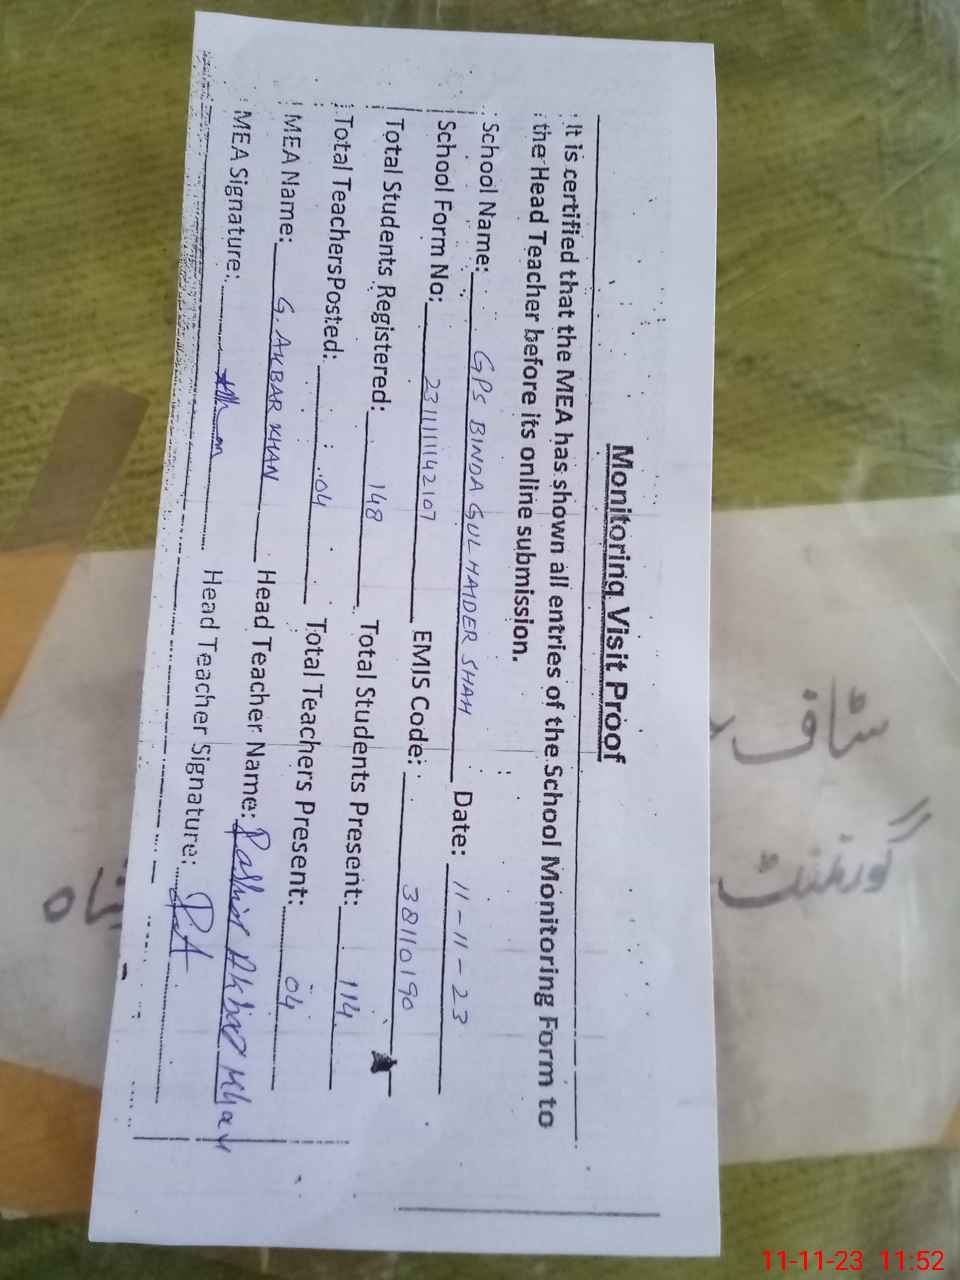 Monitoring Visit Proof
It is certified that the MEA has shown all entries of the School Monitoring Form to
the Head Teacher before its online submission.
School Name: GPS BINDA GUL HAIDER SHAH Date: 11-11-23
School Form No: 231111142107 EMIS Code: 38110190
Total Students Registered: 148 Total Students Present: 114
Total TeachersPosted: 04 Total Teachers Present: 04
MEA Name: G. AKBAR KHAN Head Teacher Name: Pashir Akbar Khan
MEA Signature: Head Teacher Signature: PA
سٹاف
گورنمنٹ
شاہ
11-11-23 11:52